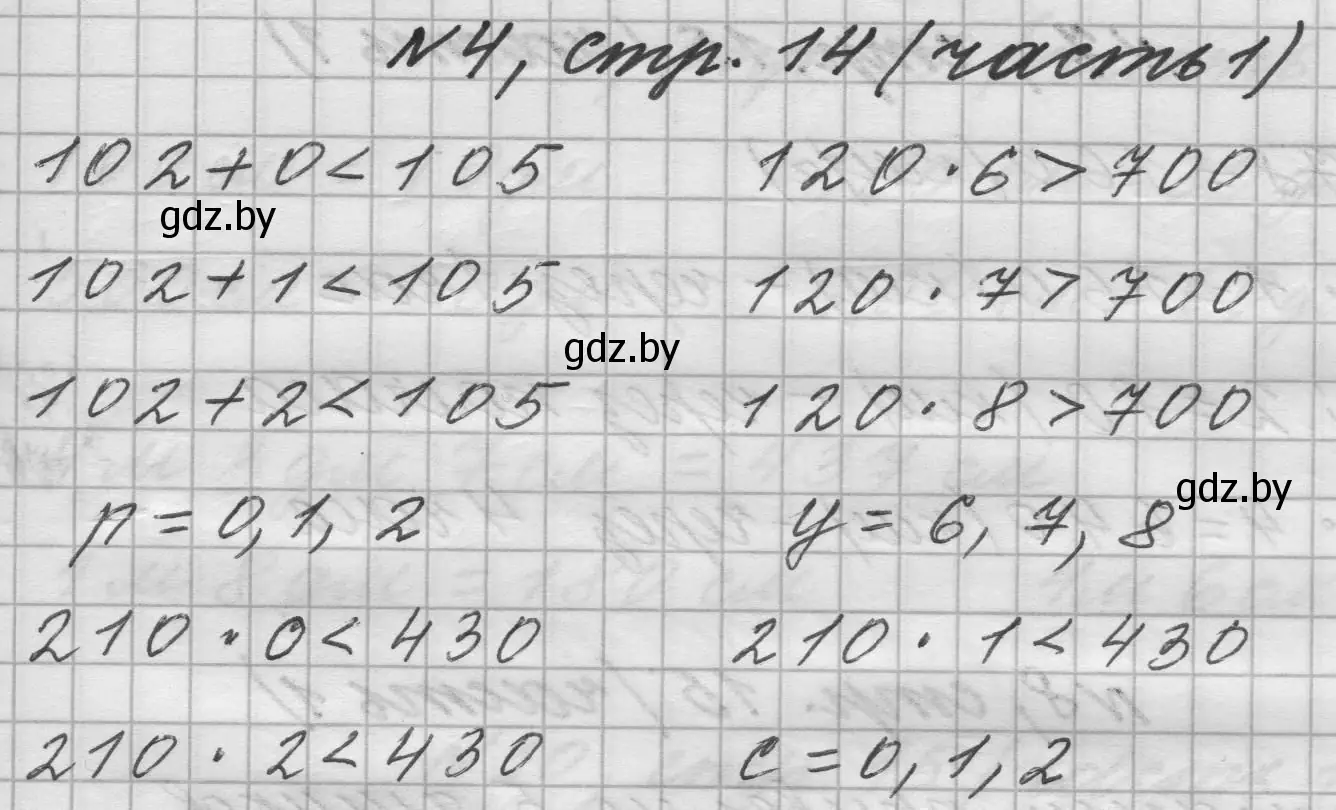 №4, стр. 14 (часть 1)
102+0<105 120·6>700
gdz.by
102+1<105 120·7>700
gdz.by
102+2<105 120·8>700
gdz.by
p=0,1,2 y=6,7,8
210·0<430 210·1<430
210·2<430 c=0,1,2